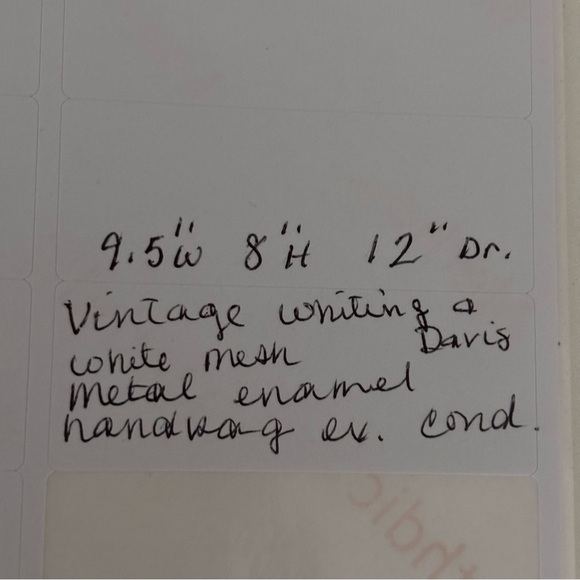 9.5"W 8"H 12" Dr.
Vintage whiting &
Davis
white mesh
metal enamel
handbag ex. cond.